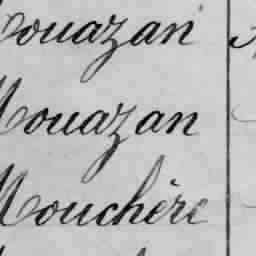 Mouazan
Mouazan
Mouchère